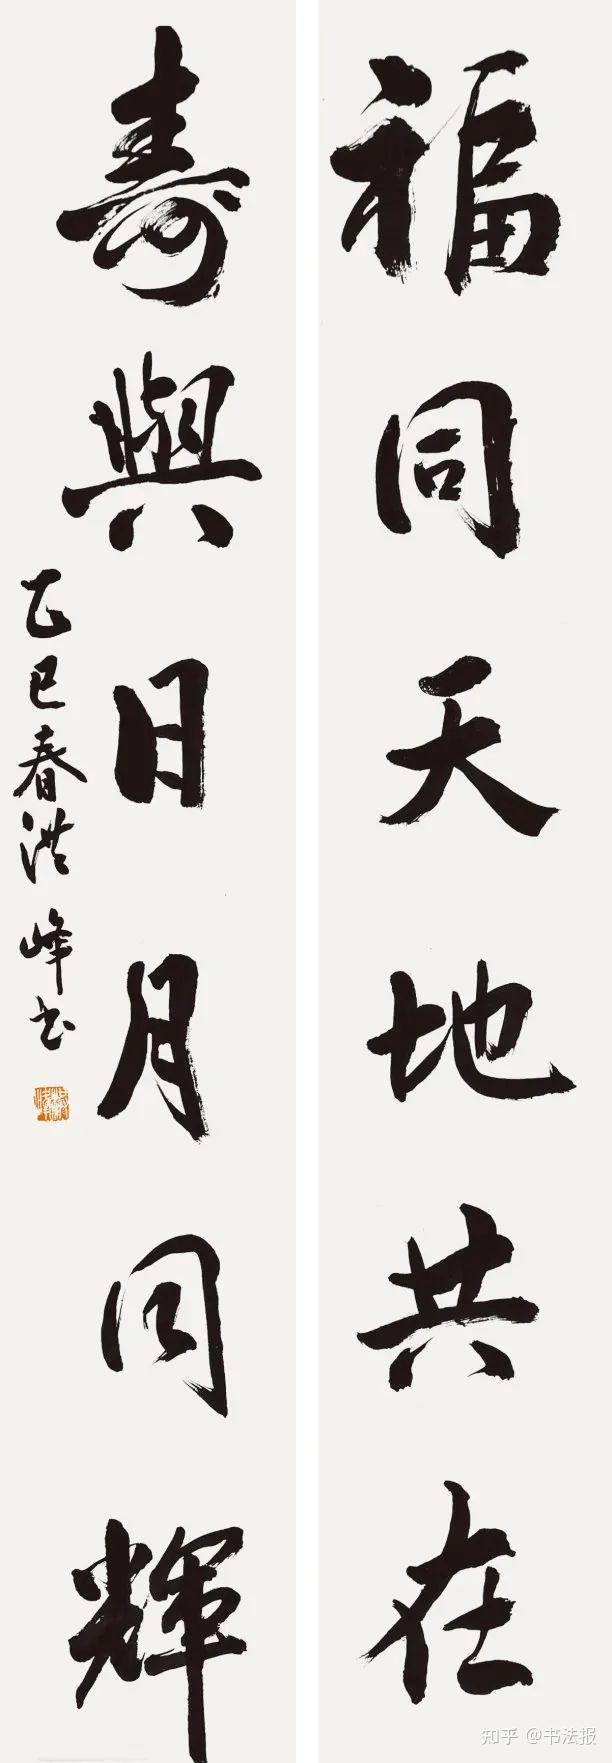 福同天地共在
壽與日月同輝
乙巳春洪峰书
知乎 @书法报